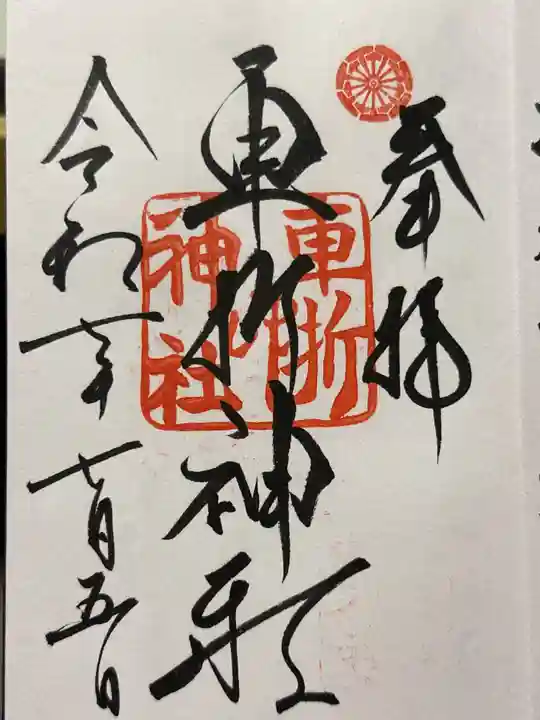 奉拝
車折神社
車折
神社
令和七年七月五日